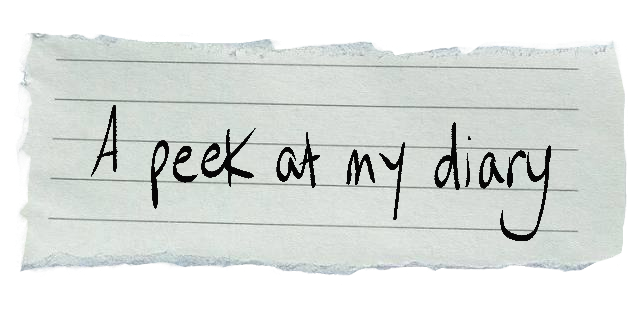 A peek at my diary